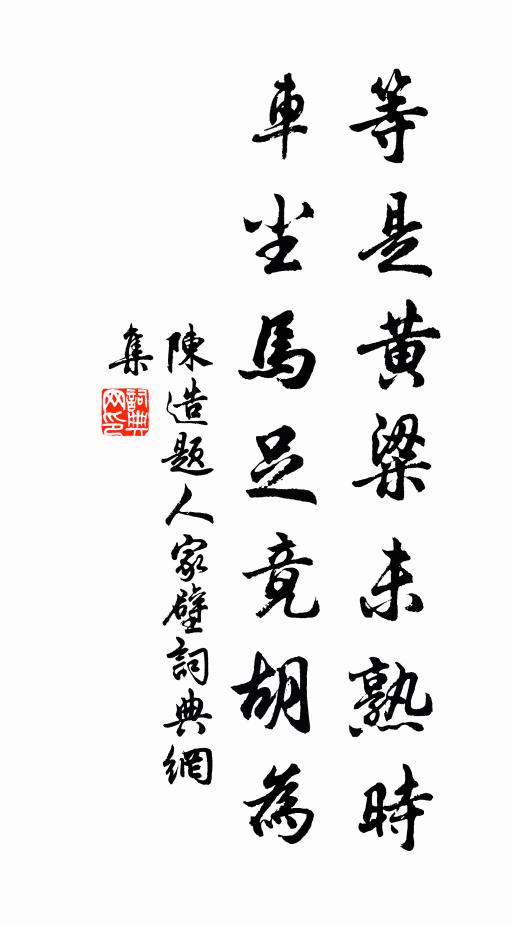 等是黄粱未熟時
車尘馬足竟胡為
陳造題人家壁詞典網
集
詞典
网印